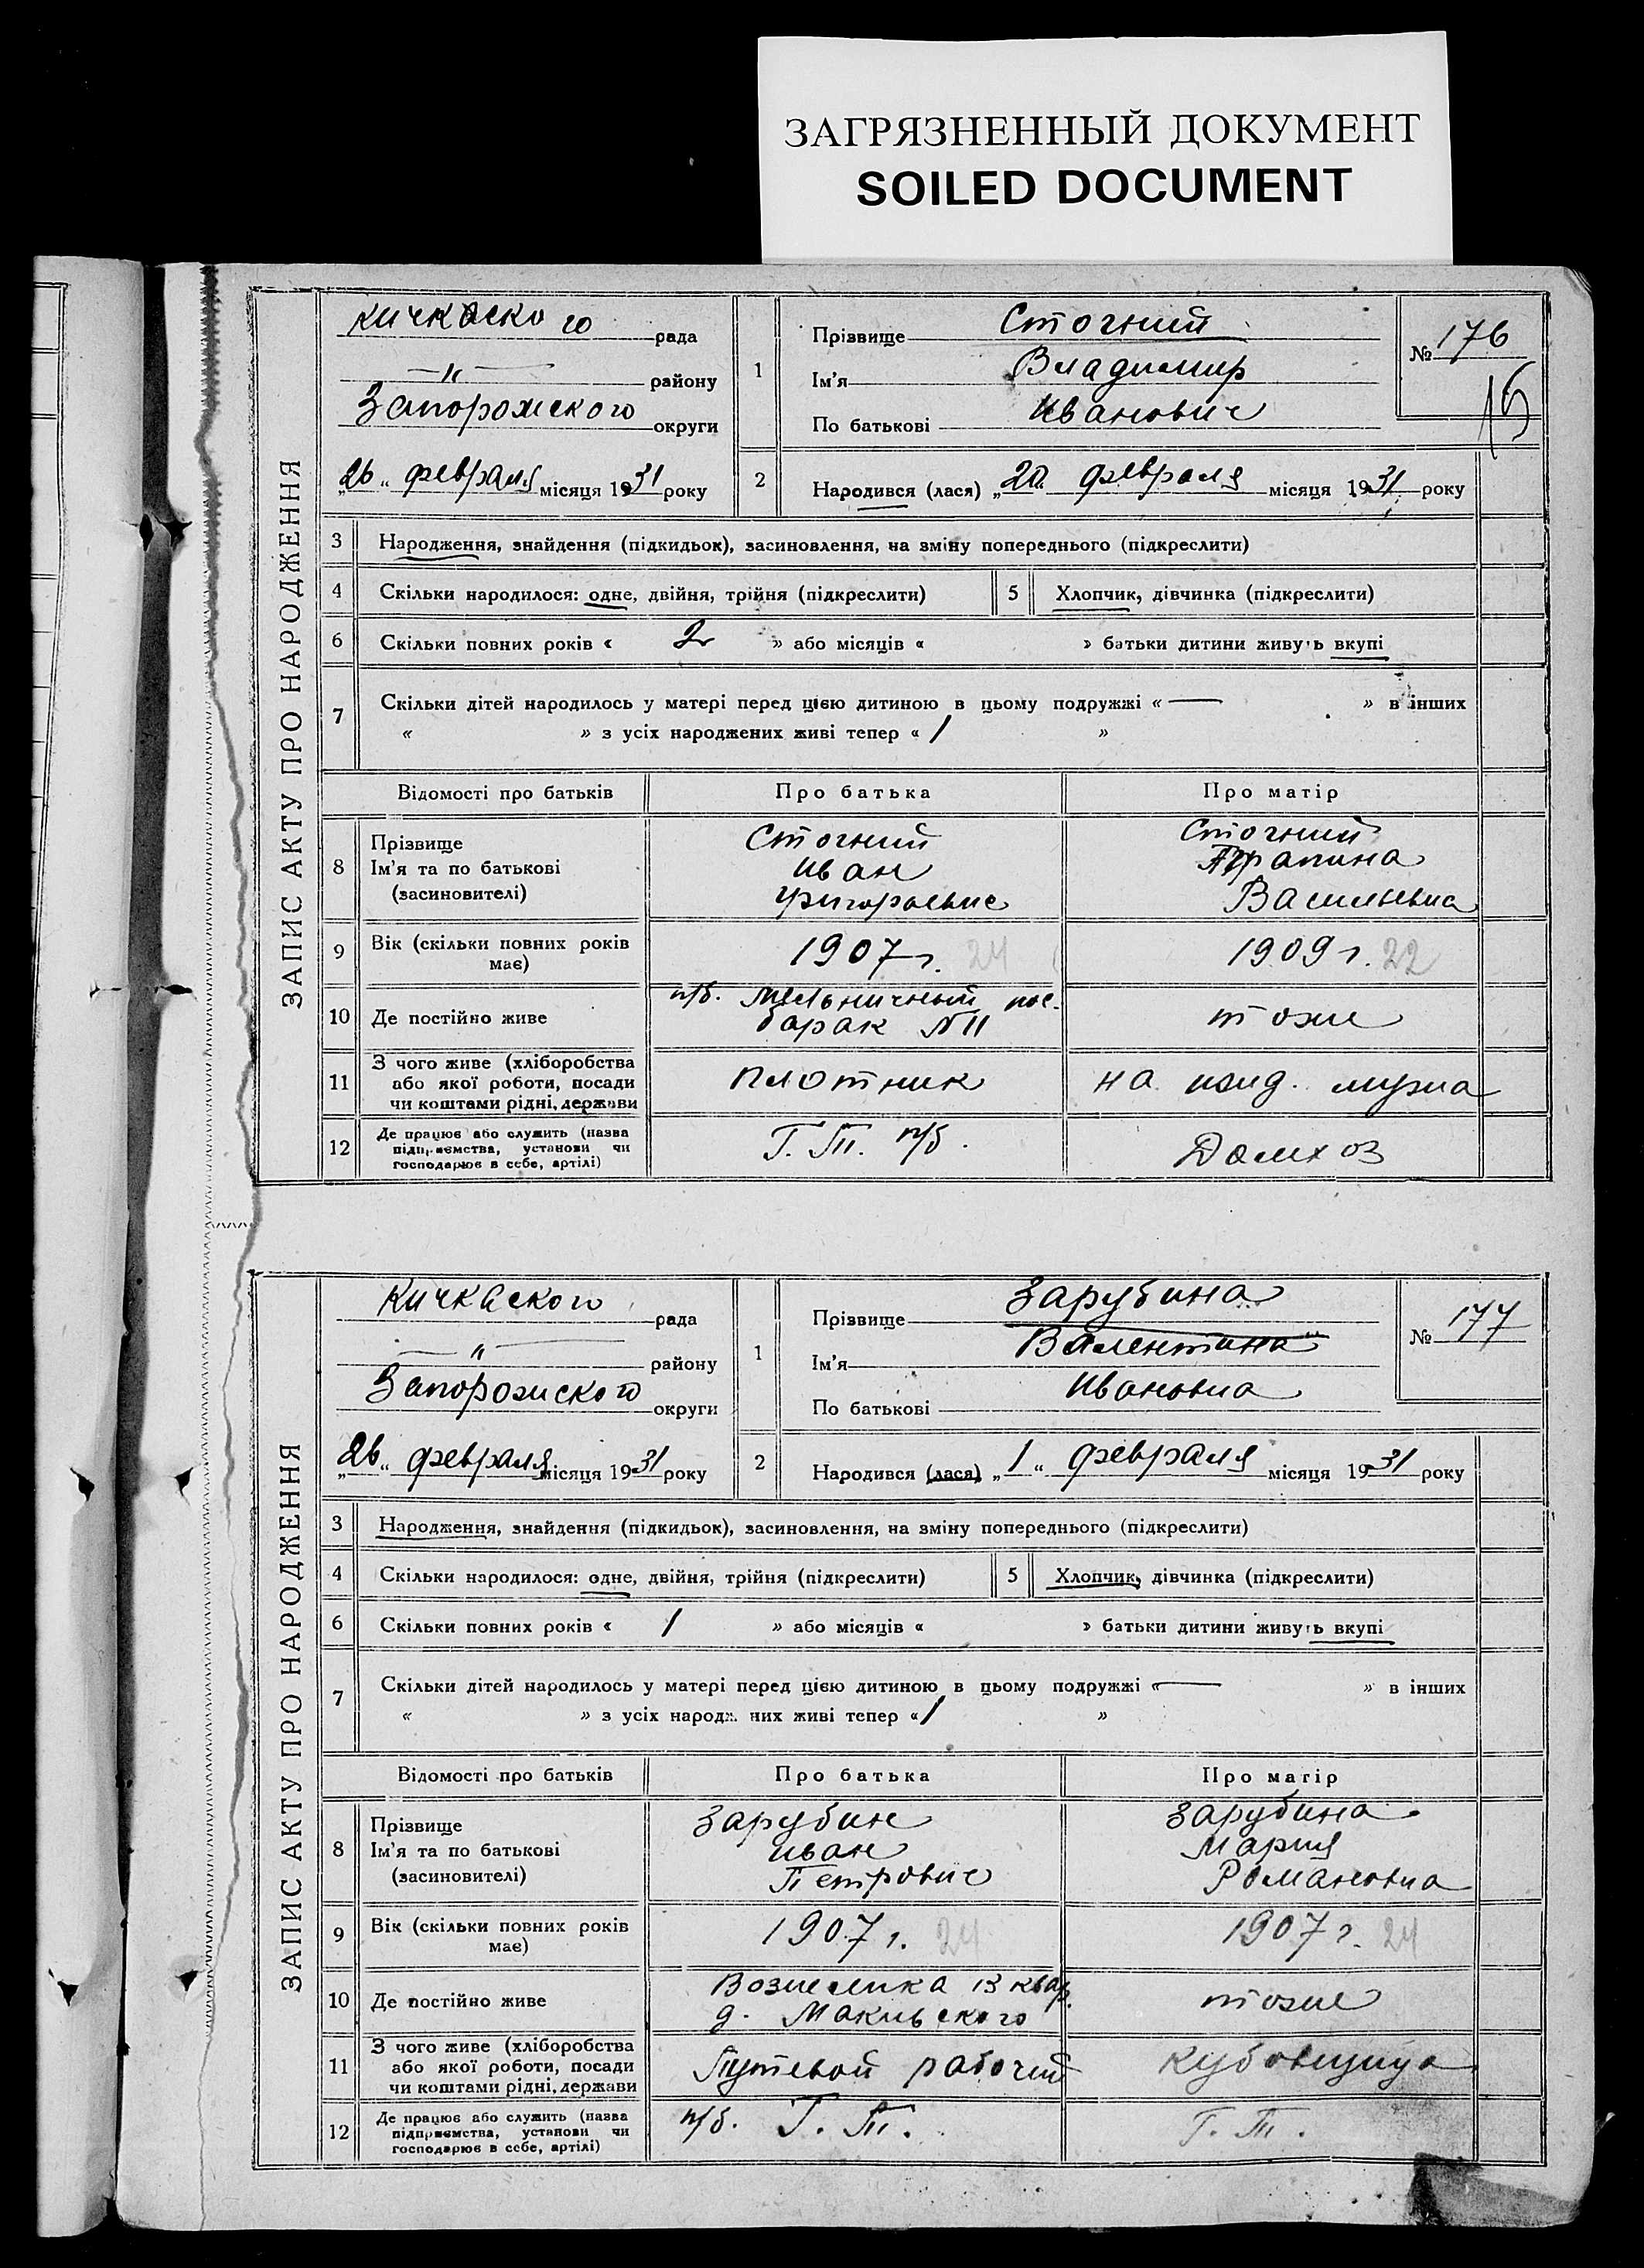 ЗАГРЯЗНЕННЫЙ ДОКУМЕНТ
SOILED DOCUMENT
ЗАПИС АКТУ ПРО НАРОДЖЕННЯ
Кичкаского рада
—"— району
Запорожского округи
„26“ февраля місяця 1931 року
1 Прізвище Сточний
Ім'я Владимир
По батькові Иванович
№ 176
15
2 Народився (лася) „20“ февраля місяця 1931 року
3 Народження, знайдення (підкидьок), засиновлення, на зміну попереднього (підкреслити)
4 Скільки народилося: одне, двійня, трійня (підкреслити) 5 Хлопчик, дівчинка (підкреслити)
6 Скільки повних років « 2 » або місяців « » батьки дитини живуть вкупі
7 Скільки дітей народилось у матері перед цією дитиною в цьому подружжі « — » в інших
« » з усіх народжених живі тепер « 1 »
Відомості про батьків Про батька Про матір
8 Прізвище
Ім'я та по батькові
(засиновителі)
Сточний
Иван
Григорьевич
Сточний
Васильевна
9 Вік (скільки повних років має) 1907 г. 24 1909 г. 22
10 Де постійно живе п/б. Мельничный пос.
барак № 11
тоже
11 З чого живе (хліборобства
або якої роботи, посади
чи коштами рідні, держави
плотник на ижд. мужа
12 Де працює або служить (назва
підприємства, установи чи
господарює в себе, артілі)
Г. П. п/б. Домхоз
ЗАПИС АКТУ ПРО НАРОДЖЕННЯ
Кичкаского рада
—"— району
Запорожского округи
„26“ февраля місяця 1931 року
1 Прізвище Зарубина
Ім'я Валентина
По батькові Ивановна
№ 177
2 Народився (лася) „1“ февраля місяця 1931 року
3 Народження, знайдення (підкидьок), засиновлення, на зміну попереднього (підкреслити)
4 Скільки народилося: одне, двійня, трійня (підкреслити) 5 Хлопчик, дівчинка (підкреслити)
6 Скільки повних років « 1 » або місяців « » батьки дитини живуть вкупі
7 Скільки дітей народилось у матері перед цією дитиною в цьому подружжі « — » в інших
« » з усіх народжених живі тепер « 1 »
Відомості про батьків Про батька Про матір
8 Прізвище
Ім'я та по батькові
(засиновителі)
Зарубин
Иван
Петрович
Зарубина
Мария
Романовна
9 Вік (скільки повних років має) 1907 г. 24 1907 г. 24
10 Де постійно живе 13 квар.
д.
тоже
11 З чого живе (хліборобства
або якої роботи, посади
чи коштами рідні, держави
Путевой рабочий кубовщица
12 Де працює або служить (назва
підприємства, установи чи
господарює в себе, артілі)
п/б. Г. П. Г. П.